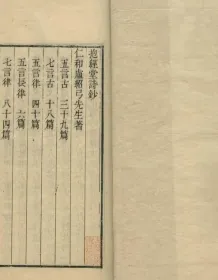 抱經堂詩鈔
仁和盧紹弓先生著
五言古　三十九篇
七言古　十八篇
五言律　四十篇
五言長律　六篇
七言律　八十四篇